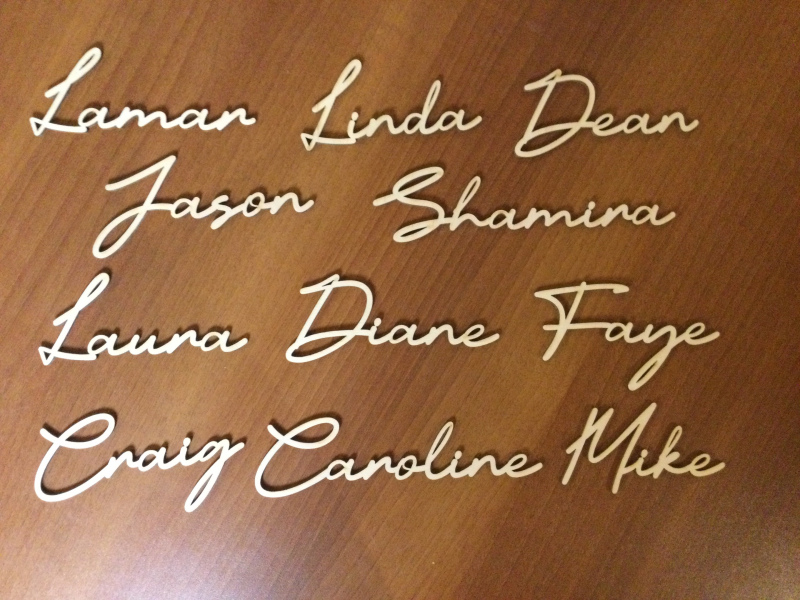 Lamar Linda Dean
Jason Shamira
Laura Diane Faye
Craig Caroline Mike